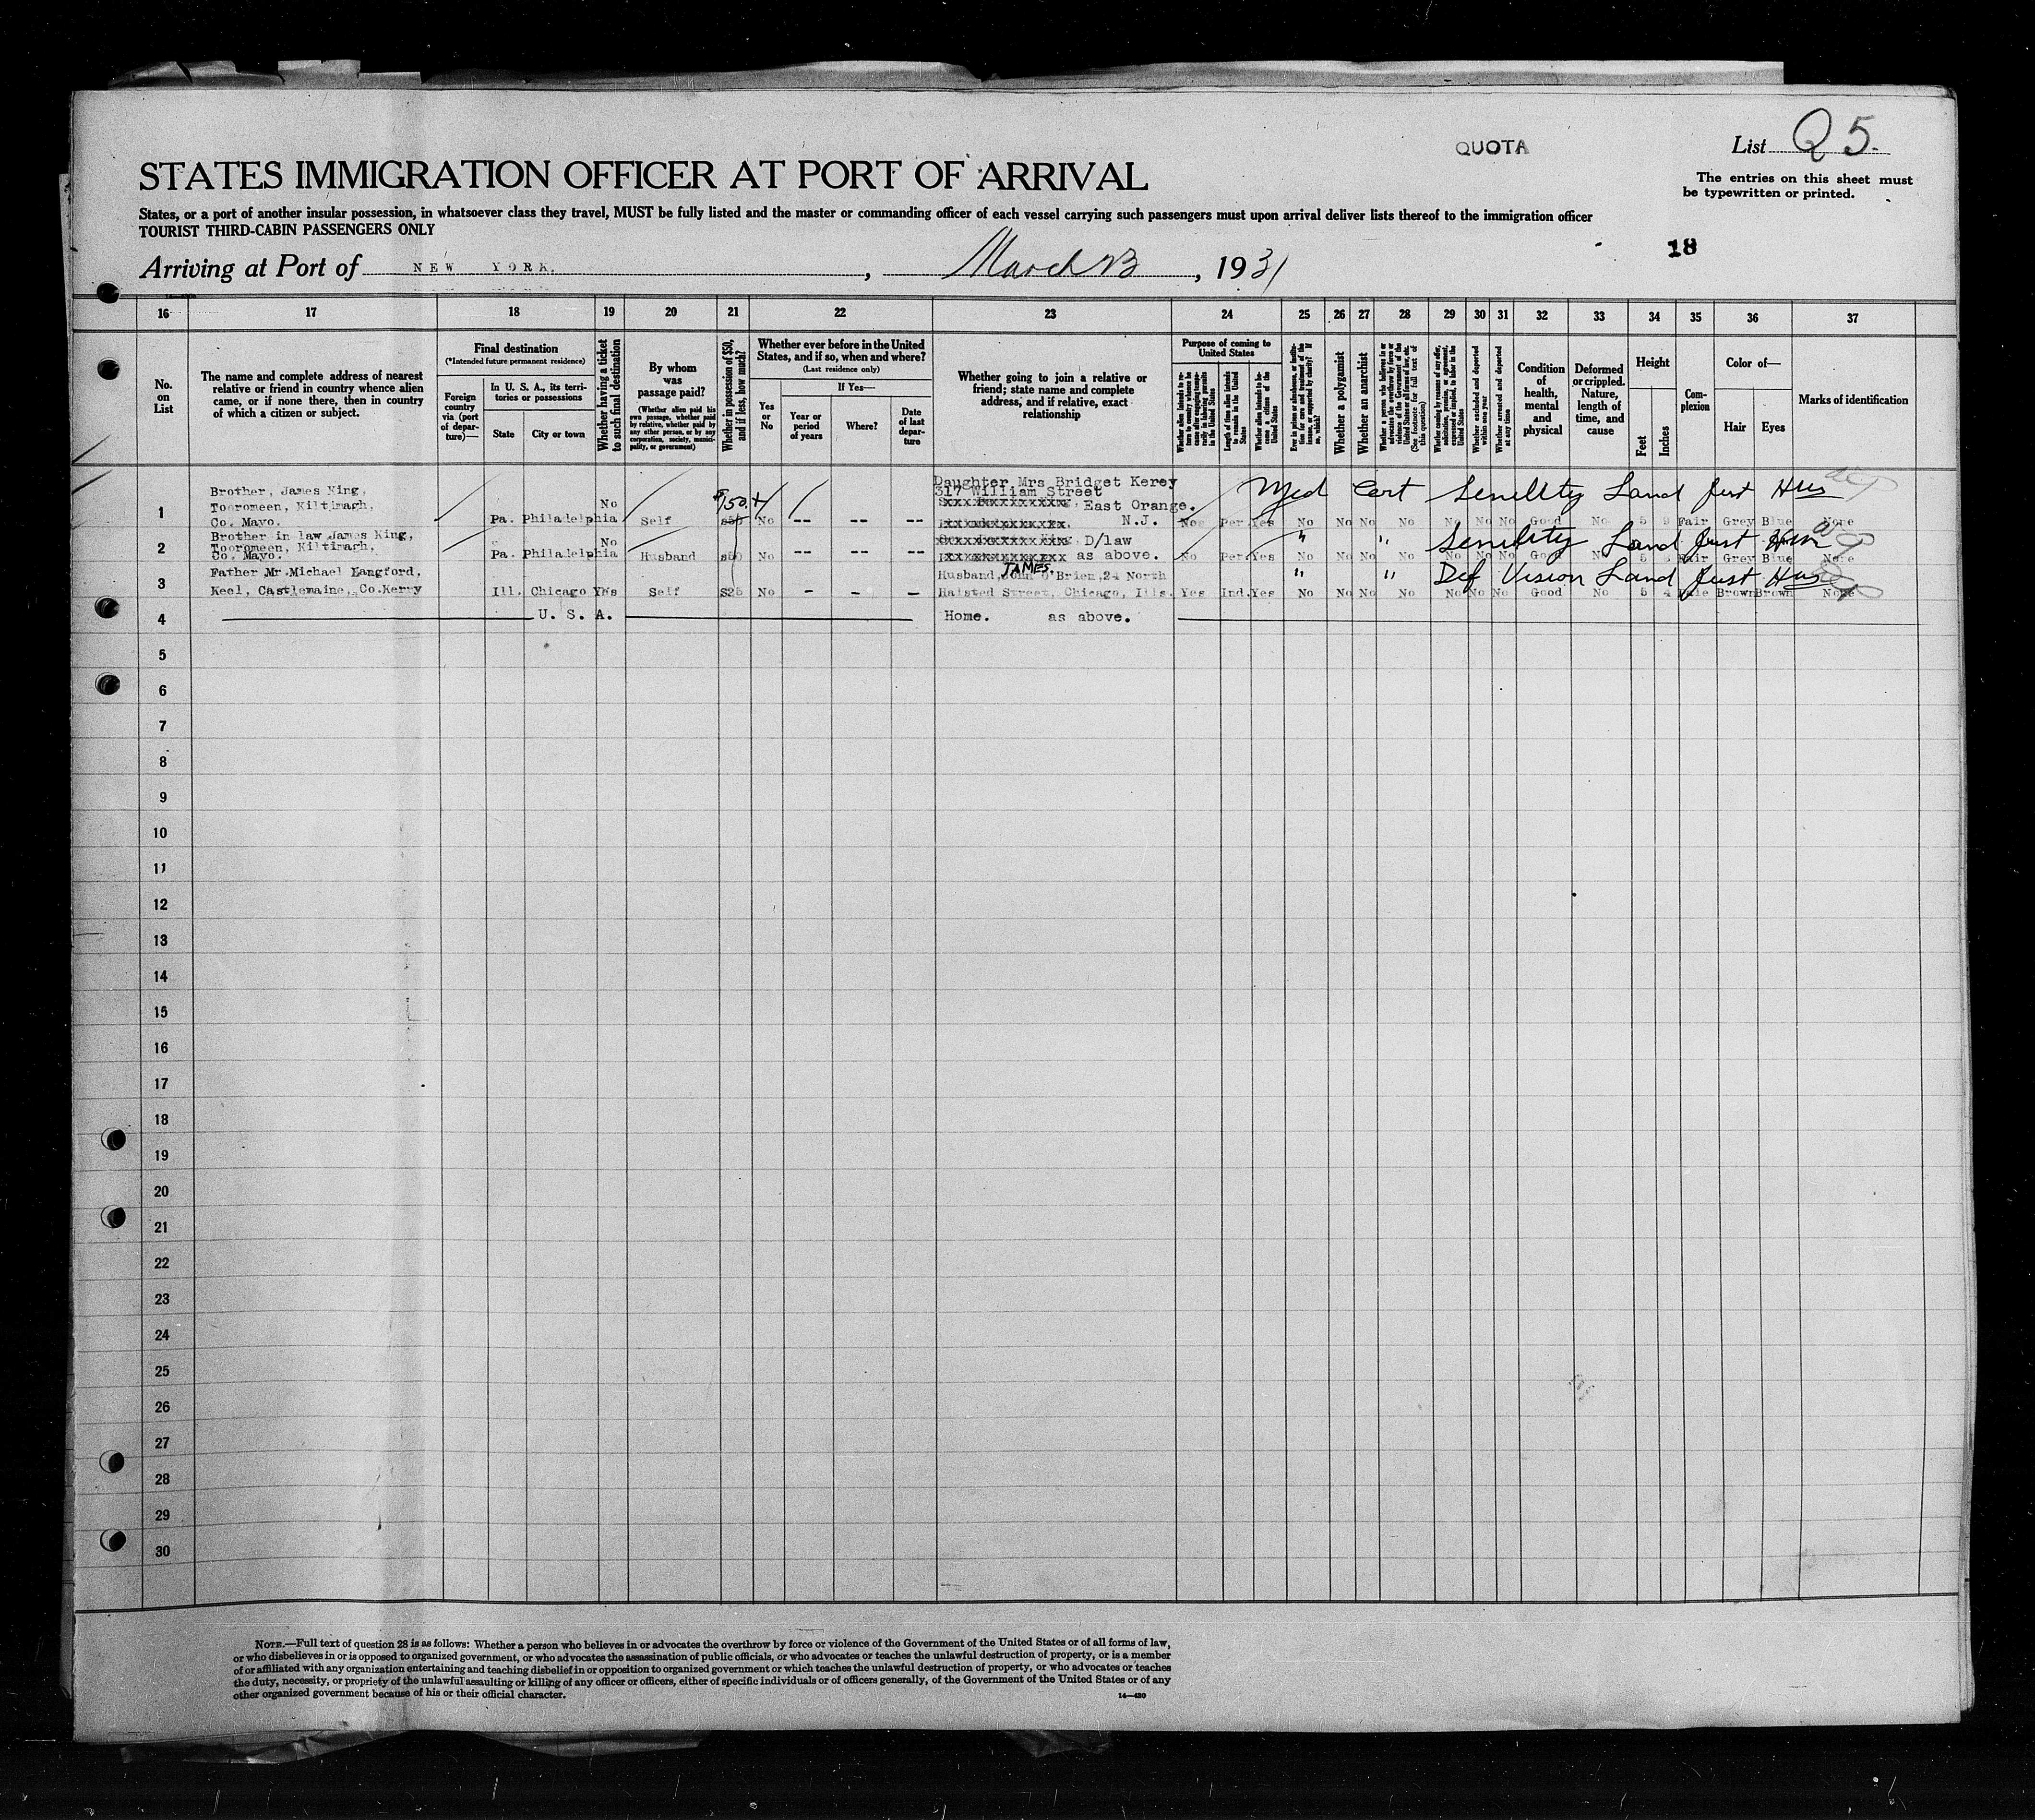 QUOTA
List Q 5.
STATES IMMIGRATION OFFICER AT PORT OF ARRIVAL
The entries on this sheet must
be typewritten or printed.
States, or a port of another insular possession, in whatsoever class they travel, MUST be fully listed and the master or commanding officer of each vessel carrying such passengers must upon arrival deliver lists thereof to the immigration officer
TOURIST THIRD-CABIN PASSENGERS ONLY
18
Arriving at Port of NEW YORK. , March 23 , 1931
16 17 18 19 20 21 22 23 24 25 26 27 28 29 30 31 32 33 34 35 36 37
No.
on
List
The name and complete address of nearest
relative or friend in country whence alien
came, or if none there, then in country
of which a citizen or subject.
Final destination
(*Intended future permanent residence)
Foreign
country
via (port
of depar-
ture)—
In U. S. A., its terri-
tories or possessions
State
City or town
Whether having a ticket
to such final destination
By whom
was
passage paid?
(Whether alien paid his
own passage, whether paid
by relative, whether paid by
any other person, or by any
corporation, society, munici-
pality, or government)
Whether in possession of $50,
and if less, how much?
Whether ever before in the United
States, and if so, when and where?
(Last residence only)
Yes
or
No
If Yes—
Year or
period
of years
Where?
Date
of last
depar-
ture
Whether going to join a relative or
friend; state name and complete
address, and if relative, exact
relationship
Purpose of coming to
United States
Length of time alien intends
to remain in the United
States
Whether alien intends to be-
come a citizen of the
United States
Whether a polygamist
Whether an anarchist
Whether excluded and deported
within one year
Whether arrested and deported
at any time
Condition
of
health,
mental
and
physical
Deformed
or crippled.
Nature,
length of
time, and
cause
Height
Feet
Inches
Com-
plexion
Color of—
Hair
Eyes
Marks of identification
1 Brother, James King,
Tooromeen, Kiltimagh,
Co. Mayo.
Pa. Philadelphia No Self $150. $50 No -- -- --
Daughter Mrs Bridget Kerey
317 William Street
East Orange.
N.J.
Med Cert Senility Land just
Per. Yes No No No No No No No Good No 5 Fair Grey Blue None
2 Brother in law James King,
Tooromeen, Kiltimagh,
Co. Mayo.
Pa. Philadelphia No Husband $50 No -- -- --
D/law
as above.
" " Senility Land just
No Per. Yes No No No No Fair Grey Blue None
3 Father Mr. Michael Langford,
Keel, Castlemaine, Co.Kerry
Ill. Chicago Yes Self $25 No - - -
JAMES.
Husband, John O'Brien, 24 North
Halsted Street, Chicago, Ills.
" " Def Vision Land just
Yes Ind. Yes No No No No No No No Good No 5 4 Pale Brown Brown None
4 U. S. A. Home. as above.
5
6
7
8
9
10
11
12
13
14
15
16
17
18
19
20
21
22
23
24
25
26
27
28
29
30
NOTE.—Full text of question 28 is as follows: Whether a person who believes in or advocates the overthrow by force or violence of the Government of the United States or of all forms of law,
or who disbelieves in or is opposed to organized government, or who advocates the assassination of public officials, or who advocates or teaches the unlawful destruction of property, or is a member
of or affiliated with any organization entertaining and teaching disbelief in or opposition to organized government or which teaches the unlawful destruction of property, or who advocates or teaches
the duty, necessity, or propriety of the unlawful assaulting or killing of any officer or officers, either of specific individuals or of officers generally, of the Government of the United States or of any
other organized government because of his or their official character.
14—430